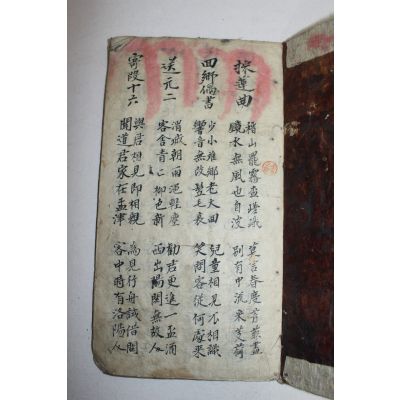 採蓮曲
稽山罷霧鬱嵯峨 莫言春度芳菲盡
鏡水無風也自波 別有中流采芰荷
回鄕偶書
少小離鄕老大回 兒童相見不相識
鄕音無改鬢毛衰 笑問客從何處來
送元二
渭城朝雨浥輕塵 勸君更進一盃酒
客舍靑靑柳色新 西出陽關無故人
寄段十六
與君相見即相親 爲見行舟試借問
聞道君家在孟津 客中時有洛陽人